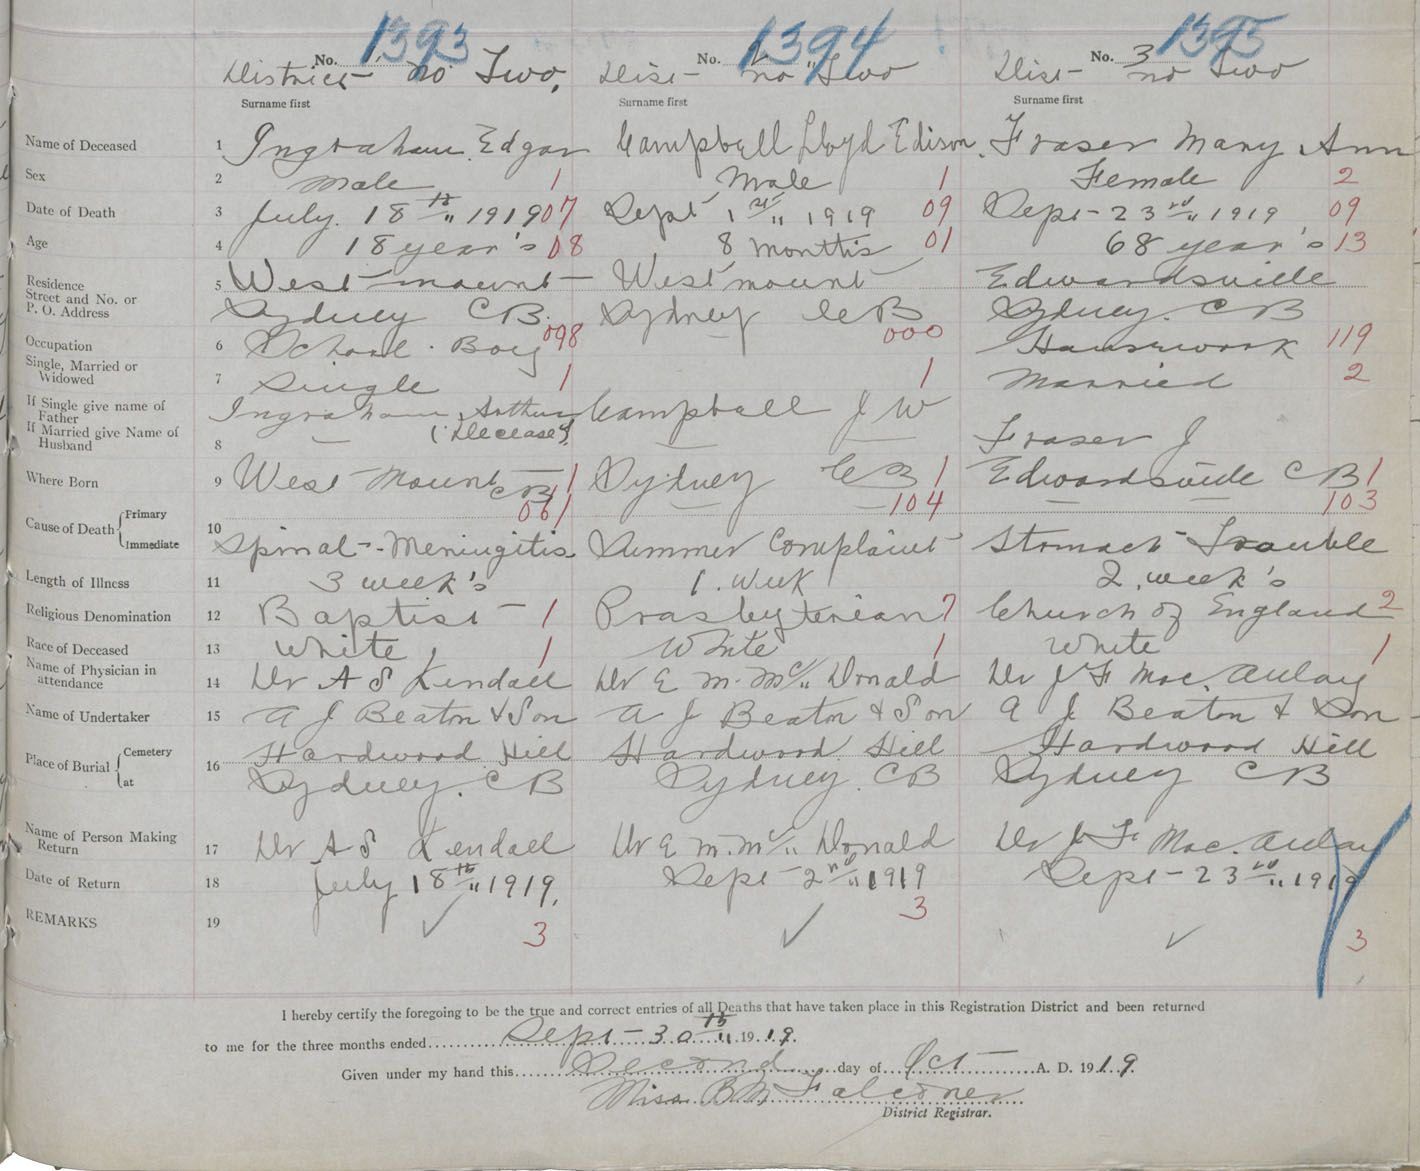 1393 1394 1395
No. 1 No. 2 No. 3
District No Two, Dist- No Two Dist- No Two
Surname first Surname first Surname first
Name of Deceased 1 Ingraham. Edgar Campbell Lloyd Edison. Fraser Mary Ann
Sex 2 male 1 Male 1 Female 2
Date of Death 3 July. 18th 1919 07 Sept 1st 1919 09 Sept- 23rd 1919 09
Age 4 18 year's 08 8 months 01 68 year's 13
Residence Street and No. or P. O. Address 5 West-mount- West mount Edwardsville
Sydney CB. Sydney CB Sydney. CB
Occupation 6 School. Boy 098 000 Housework 119
Single, Married or Widowed 7 Single 1 1 Married 2
If Single give name of Father Ingraham, Arthur Campbell J W
If Married give Name of Husband 8 (Deceased). Fraser J
Where Born 9 West Mount CB 1 Sydney CB 1 Edwardsville CB 1
061 104 103
Cause of Death { Primary Immediate 10 Spinal-Meningitis Summer Complaint Stomach Trouble
Length of Illness 11 3 week's 1. week 2. week's
Religious Denomination 12 Baptist- 1 Prasbyterian 7 Church of England 2
Race of Deceased 13 White 1 White 1 White 1
Name of Physician in attendance 14 Dr A S Kendall Dr E M. Mc Donald Dr J F Mac. Aulay
Name of Undertaker 15 A J Beaton & Son A J Beaton & Son A J Beaton & Son
Place of Burial { Cemetery at 16 Hardwood Hill Hardwood Hill Hardwood Hill
Sydney. CB Sydney. CB Sydney CB
Name of Person Making Return 17 Dr A S Kendall Dr E M. Mc Donald Dr J F Mac. Aulay
Date of Return 18 July 18th 1919. Sept- 2nd 1919 Sept- 23rd 1919
REMARKS 19 3 3 3
I hereby certify the foregoing to be the true and correct entries of all Deaths that have taken place in this Registration District and been returned
to me for the three months ended Sept- 30th 1919.
Given under my hand this Second day of Oct- A. D. 1919.
Miss B M Falconer
District Registrar.